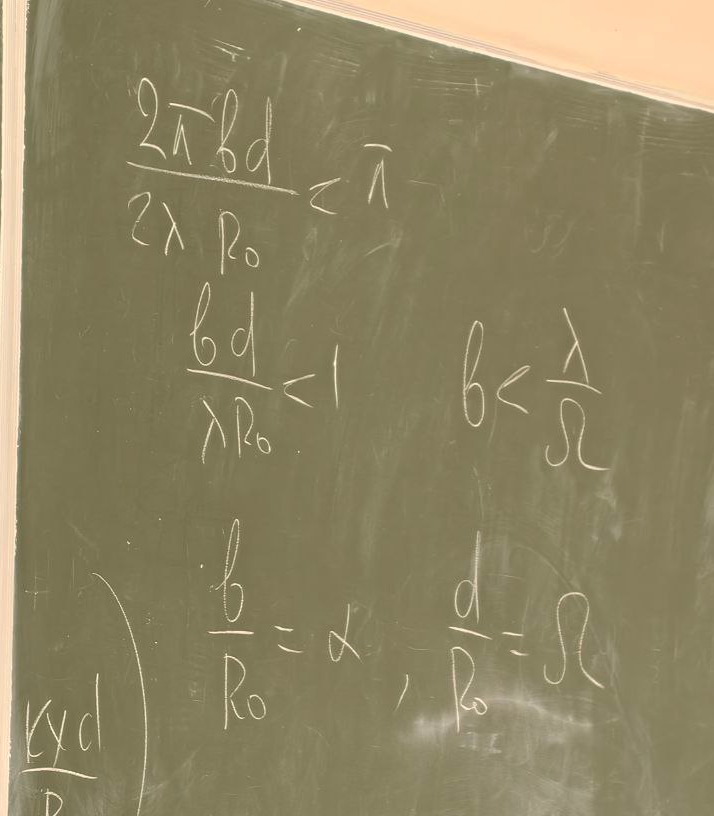 2πbd / 2λ R₀ < π
bd / λR₀ < 1
b < λ / Ω
b / R₀ = α , d / R₀ = Ω
kxd